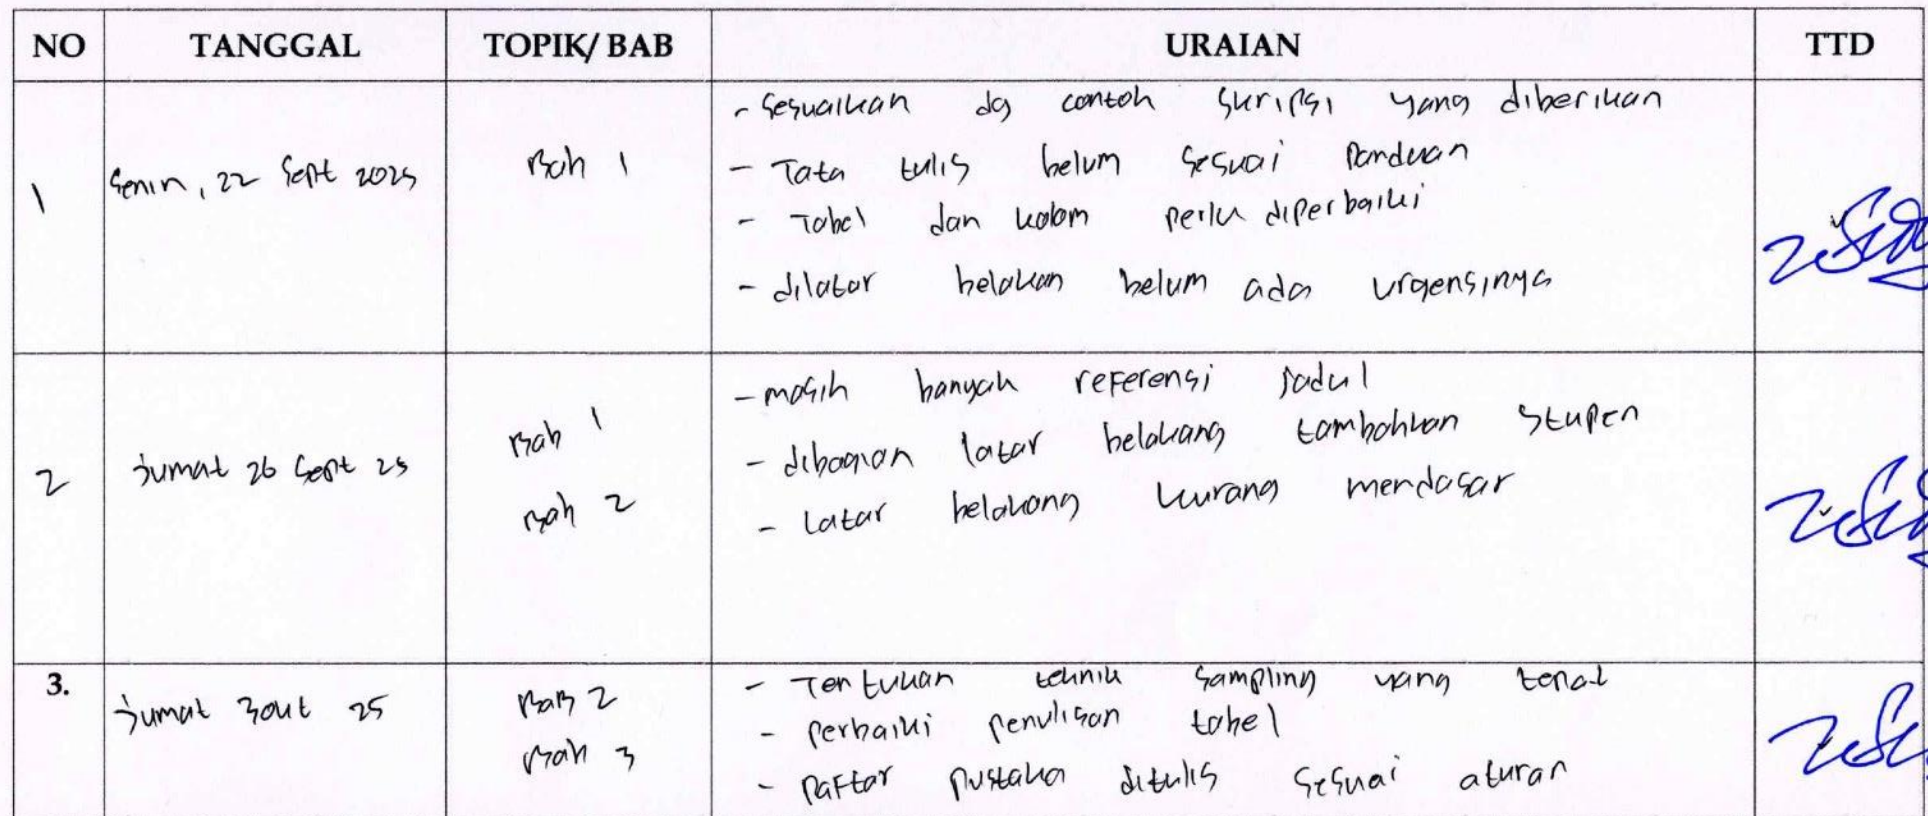 NO TANGGAL TOPIK/ BAB URAIAN TTD
1 Senin, 22 Sept 2025 Bab 1
- Sesuaikan dg contoh skripsi yang diberikan
- Tata tulis belum sesuai Panduan
- Tabel dan kolom perlu diperbaiki
- dilatar belakan belum ada urgensinya
2 Jumat 26 Sept 25 Bab 1
Bab 2
- masih banyak referensi jadul
- dibagian latar belakang tambahkan stupen
- Latar belakang kurang mendasar
3. Jumat 3 Okt 25 BAB 2
Bab 3
- Tentukan teknik sampling yang tepat
- Perbaiki penulisan tabel
- Daftar pustaka ditulis sesuai aturan